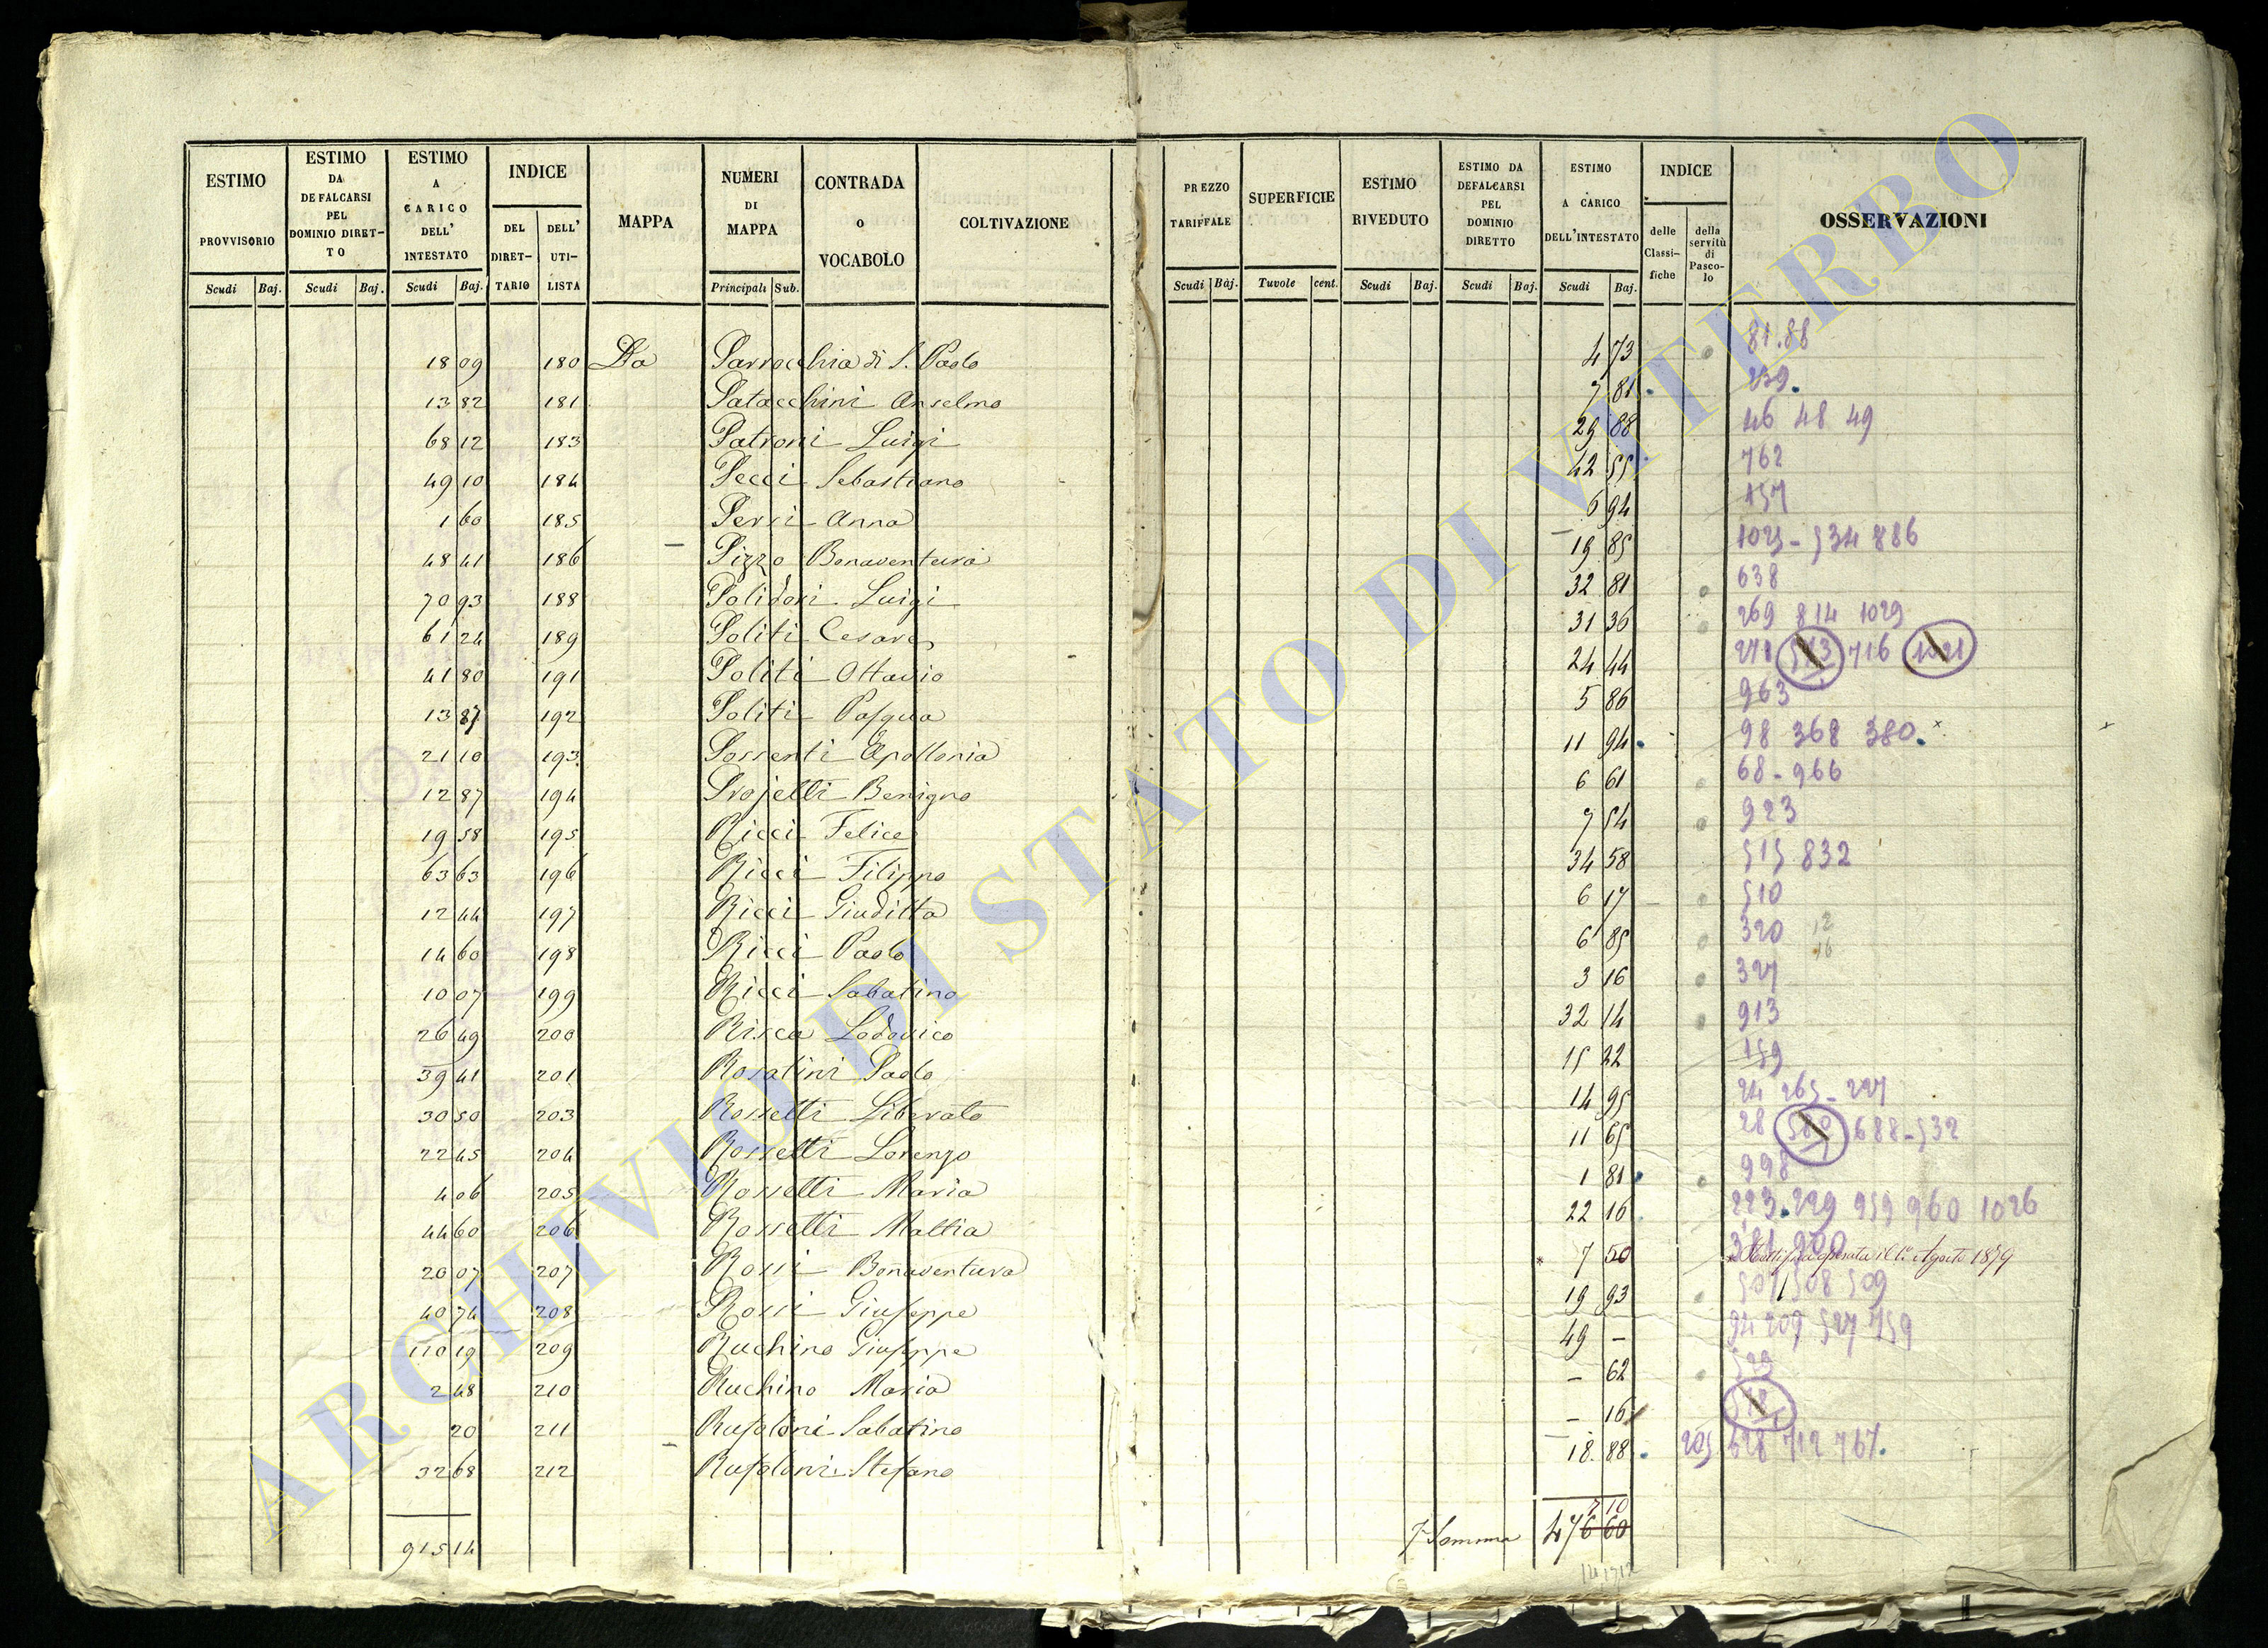 ESTIMO PROVVISORIO
ESTIMO DA DEFALCARSI PEL DOMINIO DIRET-TO
ESTIMO A CARICO DELL' INTESTATO
INDICE
DEL DIRET-TARIO
DELL' UTI-LISTA
MAPPA
NUMERI DI MAPPA
CONTRADA o VOCABOLO
COLTIVAZIONE
PREZZO TARIFFALE
SUPERFICIE
ESTIMO RIVEDUTO
ESTIMO DA DEFALCARSI PEL DOMINIO DIRETTO
ESTIMO A CARICO DELL'INTESTATO
INDICE
delle Classi-fiche
della servitù di Pasco-lo
OSSERVAZIONI
Scudi Baj. Scudi Baj. Scudi Baj. Principali Sub. Scudi Baj. Tavole cent. Scudi Baj. Scudi Baj. Scudi Baj.
18 09 180 Da Parrocchia di S. Paolo 4 73 81.88
13 82 181 Patacchini Anselmo 7 81 239.
68 12 183 Patroni Luigi 29 88 46 48 49
49 10 184 Pecci Sebastiano 42 55 762
1 60 185 Persi Anna 6 94 157
48 41 186 Pizzo Bonaventura 19 85 1025 - 534 886
70 93 188 Polidori Luigi 32 81 638
61 24 189 Politi Cesare 31 36 269 814 1029
41 80 191 Politi Ottavio 24 44 716
13 87 192 Politi Pasqua 5 86 963
21 10 193 Possenti Apollonia 11 94 98 368 380.
12 87 194 Projetti Benigno 6 61 68 - 966
19 58 195 Ricci Felice 7 54 923
63 63 196 Ricci Filippo 34 58 515 832
12 44 197 Ricci Giuditta 6 17 510
14 60 198 Ricci Paolo 6 85 320 12 16
10 07 199 Ricci Sabatino 3 16 327
26 49 200 Risca Lodovico 32 14 913
39 41 201 Rosatini Paolo 15 22 159
30 50 203 Rossetti Liberato 14 95 24 265 - 227
22 45 204 Rossetti Lorenzo 11 65 28 688 - 532
4 06 205 Rossetti Maria 1 81 998
44 60 206 Rossetti Mattia 22 16 223. 229 959 960 1026
20 07 207 Rossi Bonaventura 7 50 operata il 1° Agosto 1879
40 74 208 Rossi Giuseppe 19 93 507 508 509
110 19 209 Ruchino Giuseppe 49 - 94 209 527 759
2 48 210 Ruchino Maria - 62 529
20 211 Rufoloni Sabatino - 16
32 68 212 Rufoloni Stefano 18 88 205 628 712 767.
915 14 Somma 476 60
7 10
ARCHIVIO DI STATO DI VITERBO